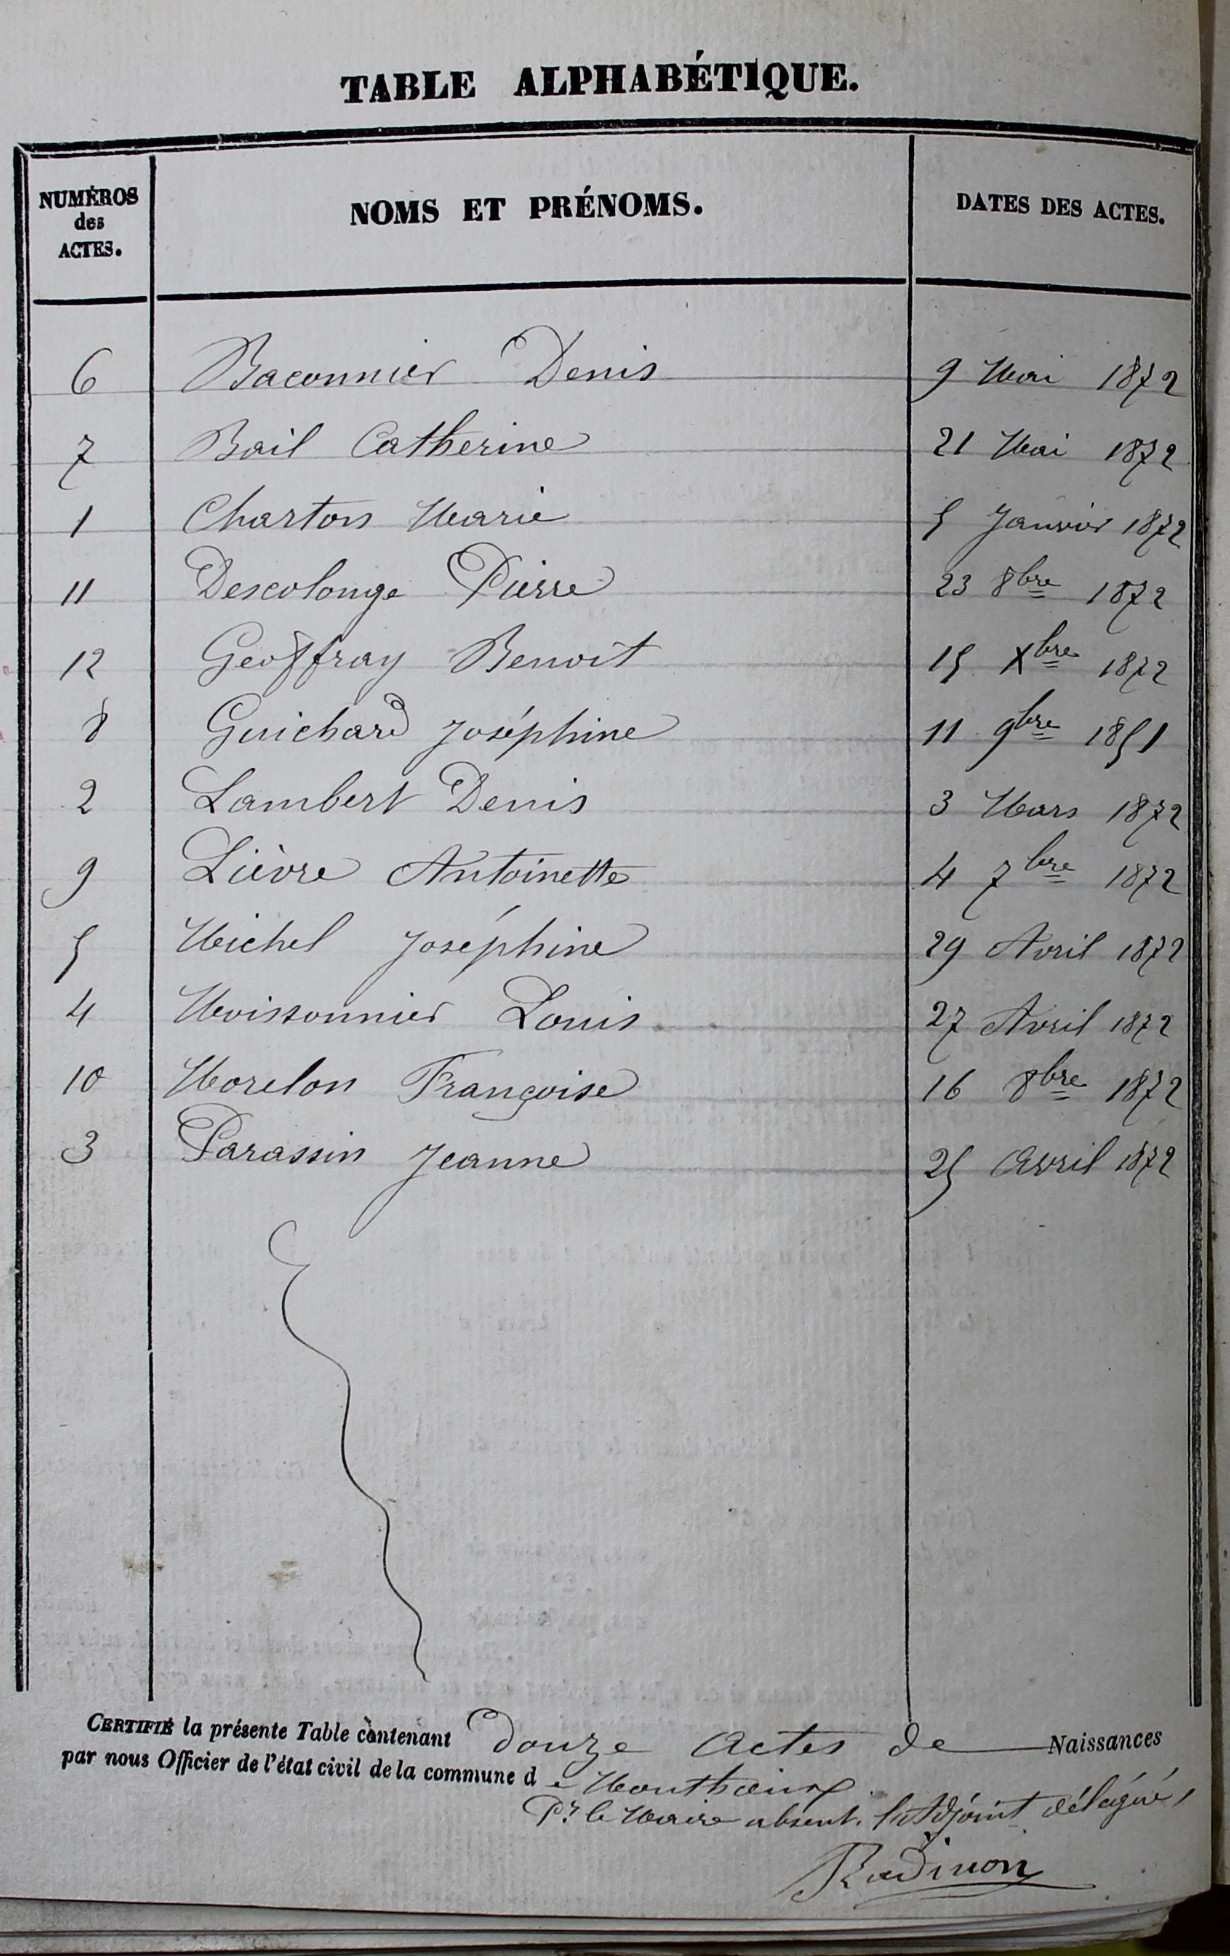 TABLE ALPHABÉTIQUE.
NUMÉROS des ACTES. NOMS ET PRÉNOMS. DATES DES ACTES.
6 Baconnier Denis 9 Mai 1872
7 Bail Catherine 21 Mai 1872
1 Charton Marie 5 Janvier 1872
11 Descolonge Pierre 23 8bre 1872
12 Geoffray Benoit 15 Xbre 1872
8 Guichard Joséphine 11 9bre 1851
2 Lambert Denis 3 Mars 1872
9 Lièvre Antoinette 4 7bre 1872
5 Michel Joséphine 29 Avril 1872
4 Moissonnier Louis 27 Avril 1872
10 Morelon Françoise 16 8bre 1872
3 Parassin Jeanne 25 Avril 1872
CERTIFIÉ la présente Table contenant douze actes de Naissances
par nous Officier de l'état civil de la commune de
Pr le Maire absent. l'adjoint délégué,